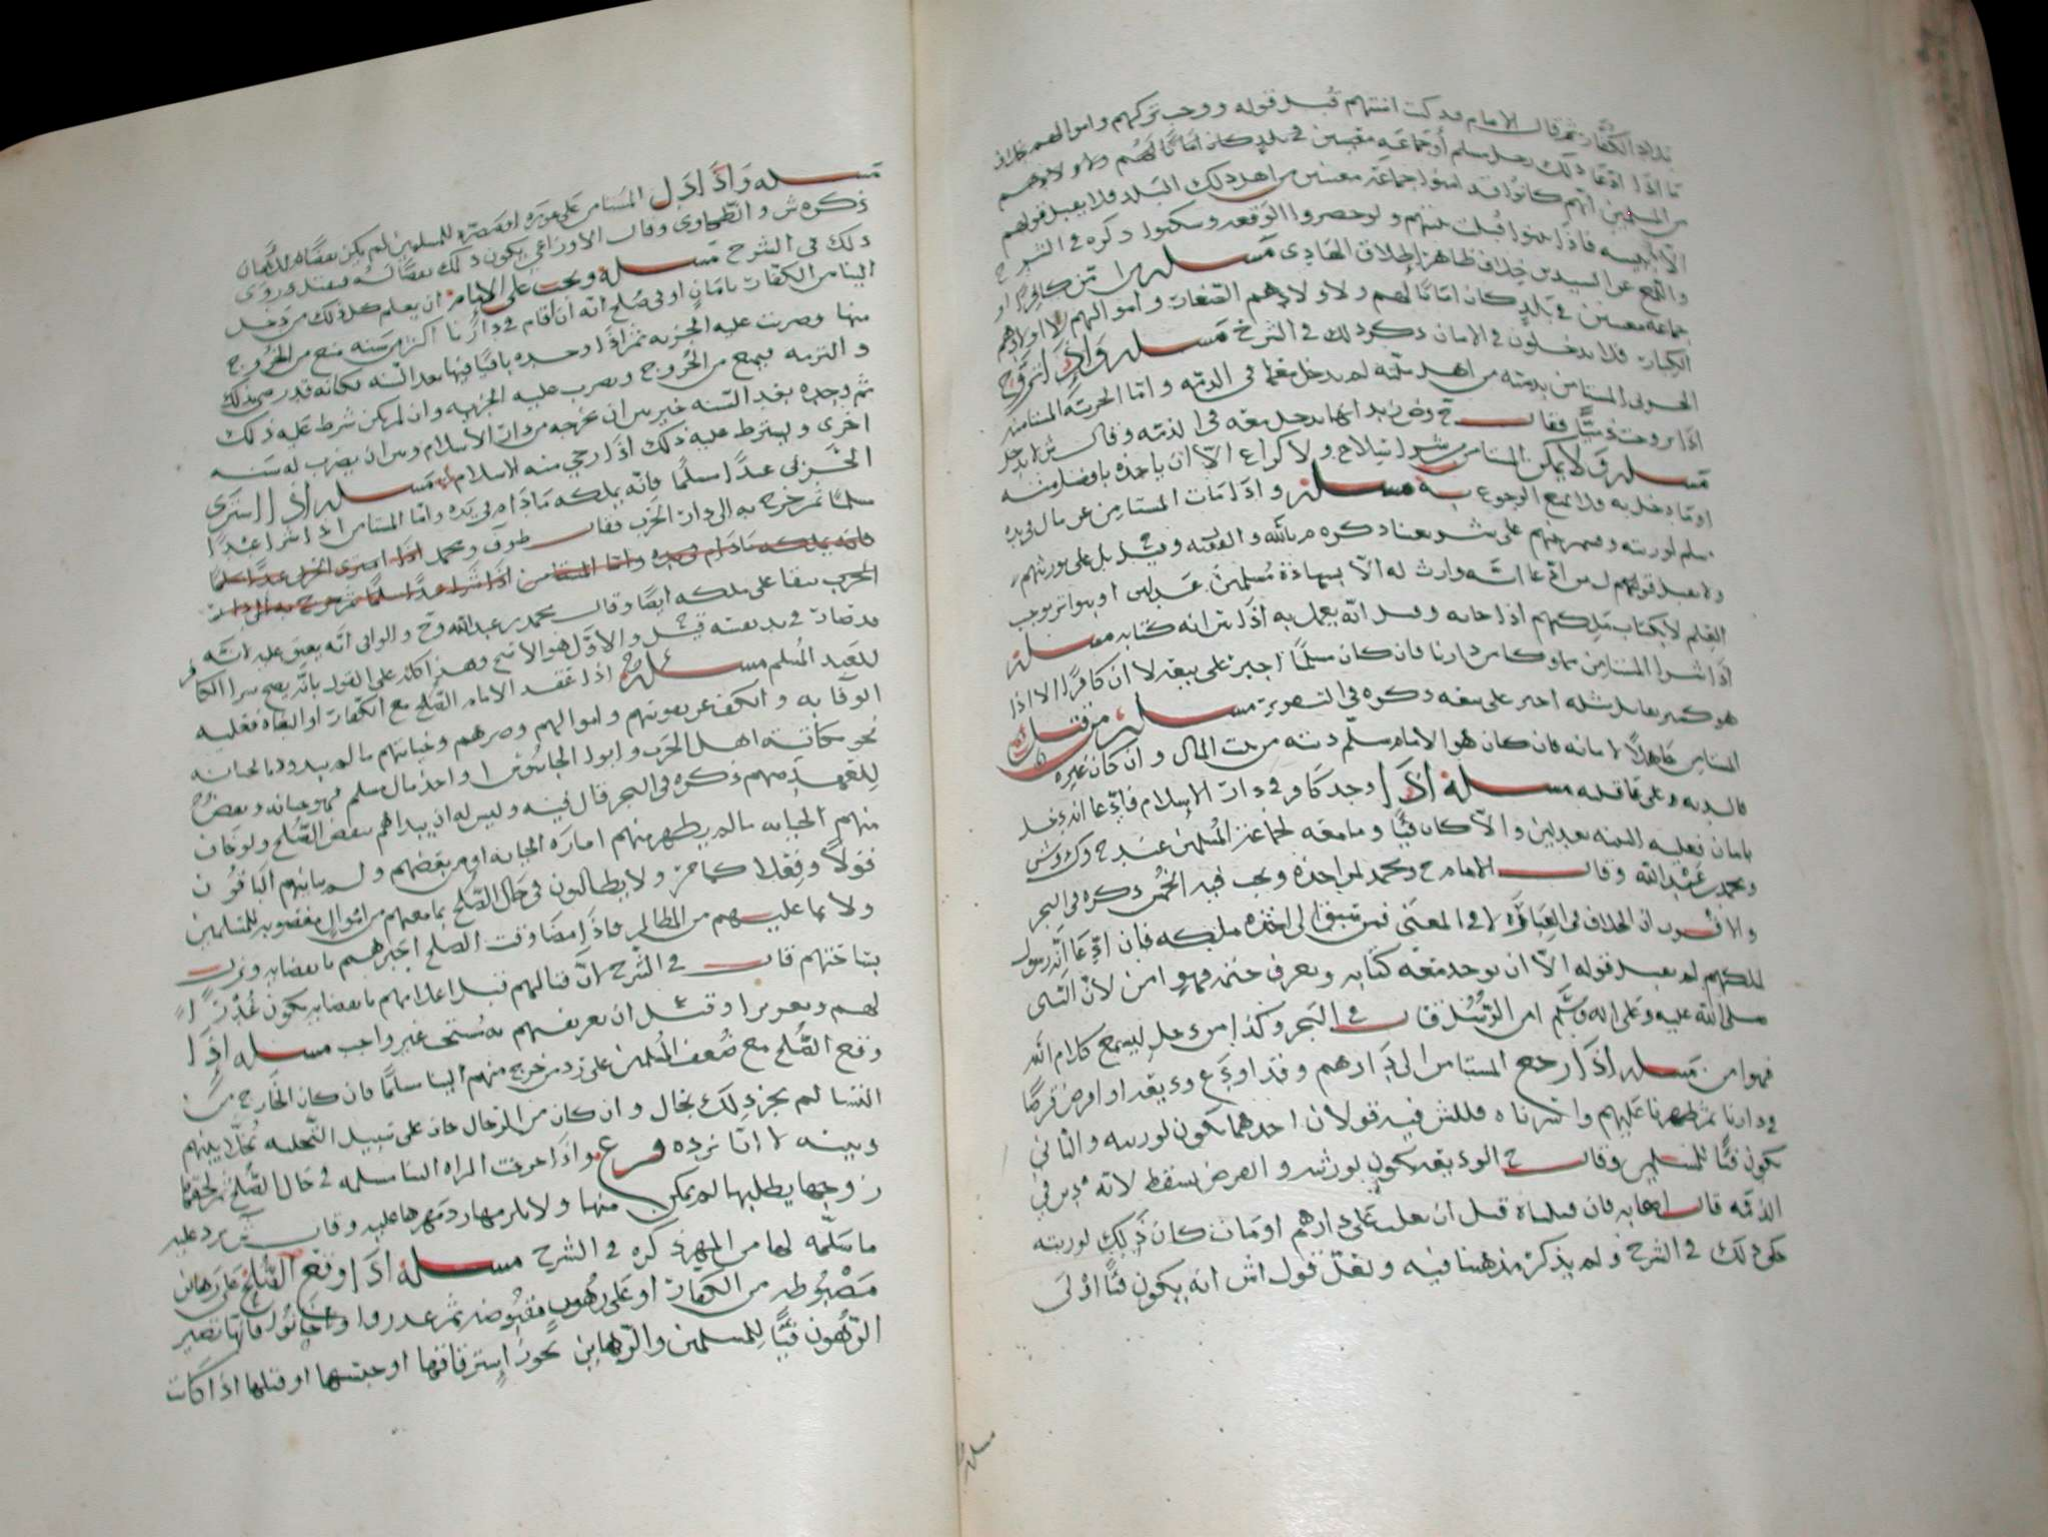 بدار الكفار ثم قال الامام قد كنت امنتهم قبل قوله ووجب تركهم واموالهم خلاف
ما اذا ادعا ذلك رجل مسلم أو جماعه معينين في بلد كان أمانا لهم ولاولادهم
من المسلمين انهم كانوا قد امنوا جماعة معينين من اهل ذلك البلد فلا يقبل قولهم
الا ببينه فاذا بينوا قبلت بينتهم ولو حضروا الوقعه وسكتوا ذكره في الشرح
واللمع عن السيدين خلاف ظاهر اطلاق الهادى مسله من امن كافرا او
جماعه معينين في بلد كان امانا لهم ولاولادهم الصغار واموالهم لا اولادهم
الكبار فلا يدخلون في الامان ذكر ذلك في الشرح مسله واذا تزوج
الحربى المستامن بذميه من اهل الذمه لم يدخل معها في الذمه واما الحربيه المستامنه
اذا تزوجت ذميا فقال ح وص بدايها يدخل معه في الذمه وقال ش لا يدخل
مسله ولا يمكن المستامن من شرا سلاح ولا كراع الا ان ياخذه بافضل منه
او ما دخل به فلا يمنع الرجوع به مسله واذا مات المستامن عن مال في يده
ولا يقبل قولهم ان من ادعا انه وارث له الا بشهادة مسلمين عدلين او بتواتر يوجب
العلم لا بكتاب ملكهم اذا جا به وقيل انه يعمل به اذا تواتر انه كتابه مسله
اذا شرا المستامن مملوكا من دارنا فان كان مسلما اجبر على بيعه لا ان كافرا الا اذا
هو كبير يقاتل مثله اجبر على بيعه ذكره في التحرير مسله من قتل
المستامن جاهلا لامانه فان كان هو الامام سلم ديته من بيت المال وان كان غيره
فالديه على عاقله مسله اذا وجد كافر في دار الاسلام فادعا انه دخل
بامان فعليه البينه بعدلين والا كان فيئا وما معه لجماعة المسلمين عند ح وك وش
ومحمد بن عبدالله وقال الامام ح ومحمد لمن اخذه ويجب فيه الخمس ذكره في البحر
والاقرب ان الخلاف في العباره لا في المعنى فمن سبق الى اخذه ملكه فان ادعا انه رسول
لملكهم لم يقبل قوله الا ان يوجد معه كتابه ويعرف ختمه فهو امن لان النبى
صلى الله عليه وعلى اله وسلم امن الرسل قال في البحر وكذا من دخل ليسمع كلام الله
فهو امن مسله اذا رجع المستامن الى دارهم وقد اودع وديعه او اقرض قرضا
في دارنا ثم ظهرنا عليهم واسرناه فللش فيه قولان احدهما يكون لورثته والثاني
يكون فيئا للمسلمين وقال ح الوديعه يكون لورثته والقرض يسقط لانه دين في
الذمه قال اصحابه فان قتلناه قبل ان نغلب على دارهم او مات كان ذلك لورثته
حكى ذلك في الشرح ولم يذكر مذهبنا فيه ولعل قول اش انه يكون فيئا اولى
مسله
مسله واذا دل المستامن على عوره او مضره للمسلمين لم يكن نقضا للامان
ذكره ش والطحاوى وقال الاوزاعي يكون ذلك نقضا له فيقتل وروى
ذلك في الشرح مسله ويجب على الامام ان يعلم كل ذلك من دخل
الينا من الكفار بامان او في صلح انه ان اقام في دارنا اكثر من سنه منع من الخروج
منها وضربت عليه الجزيه ثم اذا وجده باقيا فيها بعد السنه فكانه قد رضى بذلك
والتزمه فيمنع من الخروج ويضرب عليه الجزيه وان لم يكن شرط عليه ذلك
ثم وجده بعد السنه خير بين ان يخرجه من دار الاسلام وبين ان يضرب له سنه
اخرى ويشترط عليه ذلك اذا رجي منه الاسلام مسله اذا اشترى
الحربى عبدا مسلما فانه يملكه ما دام في يده واما المستامن اذا شرا عبدا
مسلما ثم خرج به الى دار الحرب فقال ط وف ومحمد اذا اشترى الحربى عبدا مسلما
فانه يملكه ما دام في يده واما المستامن اذا شرا عبدا مسلما ثم خرج به الى دار
الحرب يبقا على ملكه ايضا وقال محمد بن عبدالله وح والوافى انه يعتق عليه لانه
قد صار في يد نفسه قيل والاول هو الاصح وهذا كله على القول بانه يصح شرا الكافر
للعبد المسلم مسله اذا عقد الامام الصلح مع الكفار او البغاه فعليه
الوفا به والكف عن بيوتهم واموالهم وضرهم وخيانتهم ما لم يبدوه بالخيانه
نحو مكاتبة اهل الحرب وايوا الجاسوس واخذ مال مسلم فهو خيانه ونقض
للعهد منهم ذكره في البحر قال فيه وليس له ان يبداهم بنقض الصلح ولو خاف
منهم الخيانه ما لم يظهر منهم امارة الخيانه او من بعضهم ولم يباينهم الباقون
قولا وفعلا كما مر ولا يطالبون في حال الصلح بما معهم من اموال مغصوبه للمسلمين
ولا بما عليهم من المظالم فاذا مضا وقت الصلح اخبرهم بانقضايه ونزلت
بساحتهم قال في الشرح لان قتالهم قبل اعلامهم بانقضايه يكون غدرا
لهم وتغريرا وقيل ان تعريفهم به مستحب غير واجب مسله اذا
وقع الصلح مع ضعف المسلمين على رد من خرج منهم الينا مسلما فان كان الخارج من
النسا لم يجز ذلك بحال وان كان من الرجال جاز على سبيل التخليه يخلا بينهم
وبينه لا انا نرده فرع واذا خرجت المراه الينا مسلمه في حال الصلح ثم لحقها
زوجها يطلبها لم يمكن منها ولا يلزمها رد مهرها عليه وقال ش يرد عليه
ما سلمه لها من المهر ذكره في الشرح مسله اذا وقع الصلح على رهاين
مضبوطه من الكفار او على رهون مقبوضه ثم غدروا وخانوا فانها تصير
الرهون فيئا للمسلمين والرهاين يجوز استرقاقها او حبسها او قتلها اذا كانت